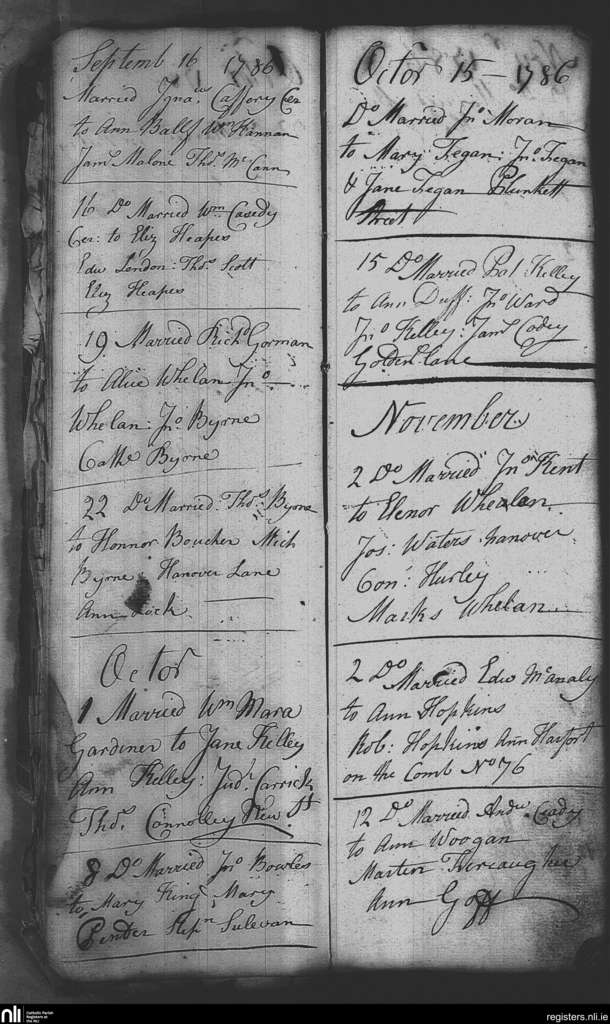 Septemb 16 1786
Married Igna.us Caffory Cer
to Ann Ball Wm Hannan
Jam.s Malone Tho.s Mc Cann
16 Do Married Wm Casedy
Cer: to Eliz Heapes
Edw London: Tho.s Scott
Eliz Heapes
19 Married Richd Gorman
to Alice Whelan Jno
Whelan: Jno Byrne
Cathe Byrne
22 Do Married: Tho.s Byrne
to Honnor Boucher Mich
Byrne Hanover Lane
Ann
Octor
1 Married Wm Mara
Gardiner to Jane Kelley
Ann Kelley: Jud.h Carrick
Tho.s Connolley New St
8 Do Married Jno Bowles
to Mary King Mary
Pender Sulevan
Octor 15 – 1786
Do Married Jno Moran
to Mary Fegan: Jno Fegan
& Jane Fegan Plunkett
Street
15 Do Married Pat Kelley
to Ann Duff: Jno Ward
Jno Kelley: Jam.s Codey
Golden Lane
November
2 Do Married Jno Kent
to Elenor Whealan
Jos: Waters hanover
Con: Hurley
Marks Whelan
2 Do Married Edw Mcanaly
to Ann Hopkins
Rob: Hopkins Ann Harfort
on the Comb No 76
12 Do Married Andw
to Ann Woogan
Marten
Ann Goff
nli
Catholic Parish
Registers at
the NLI
registers.nli.ie